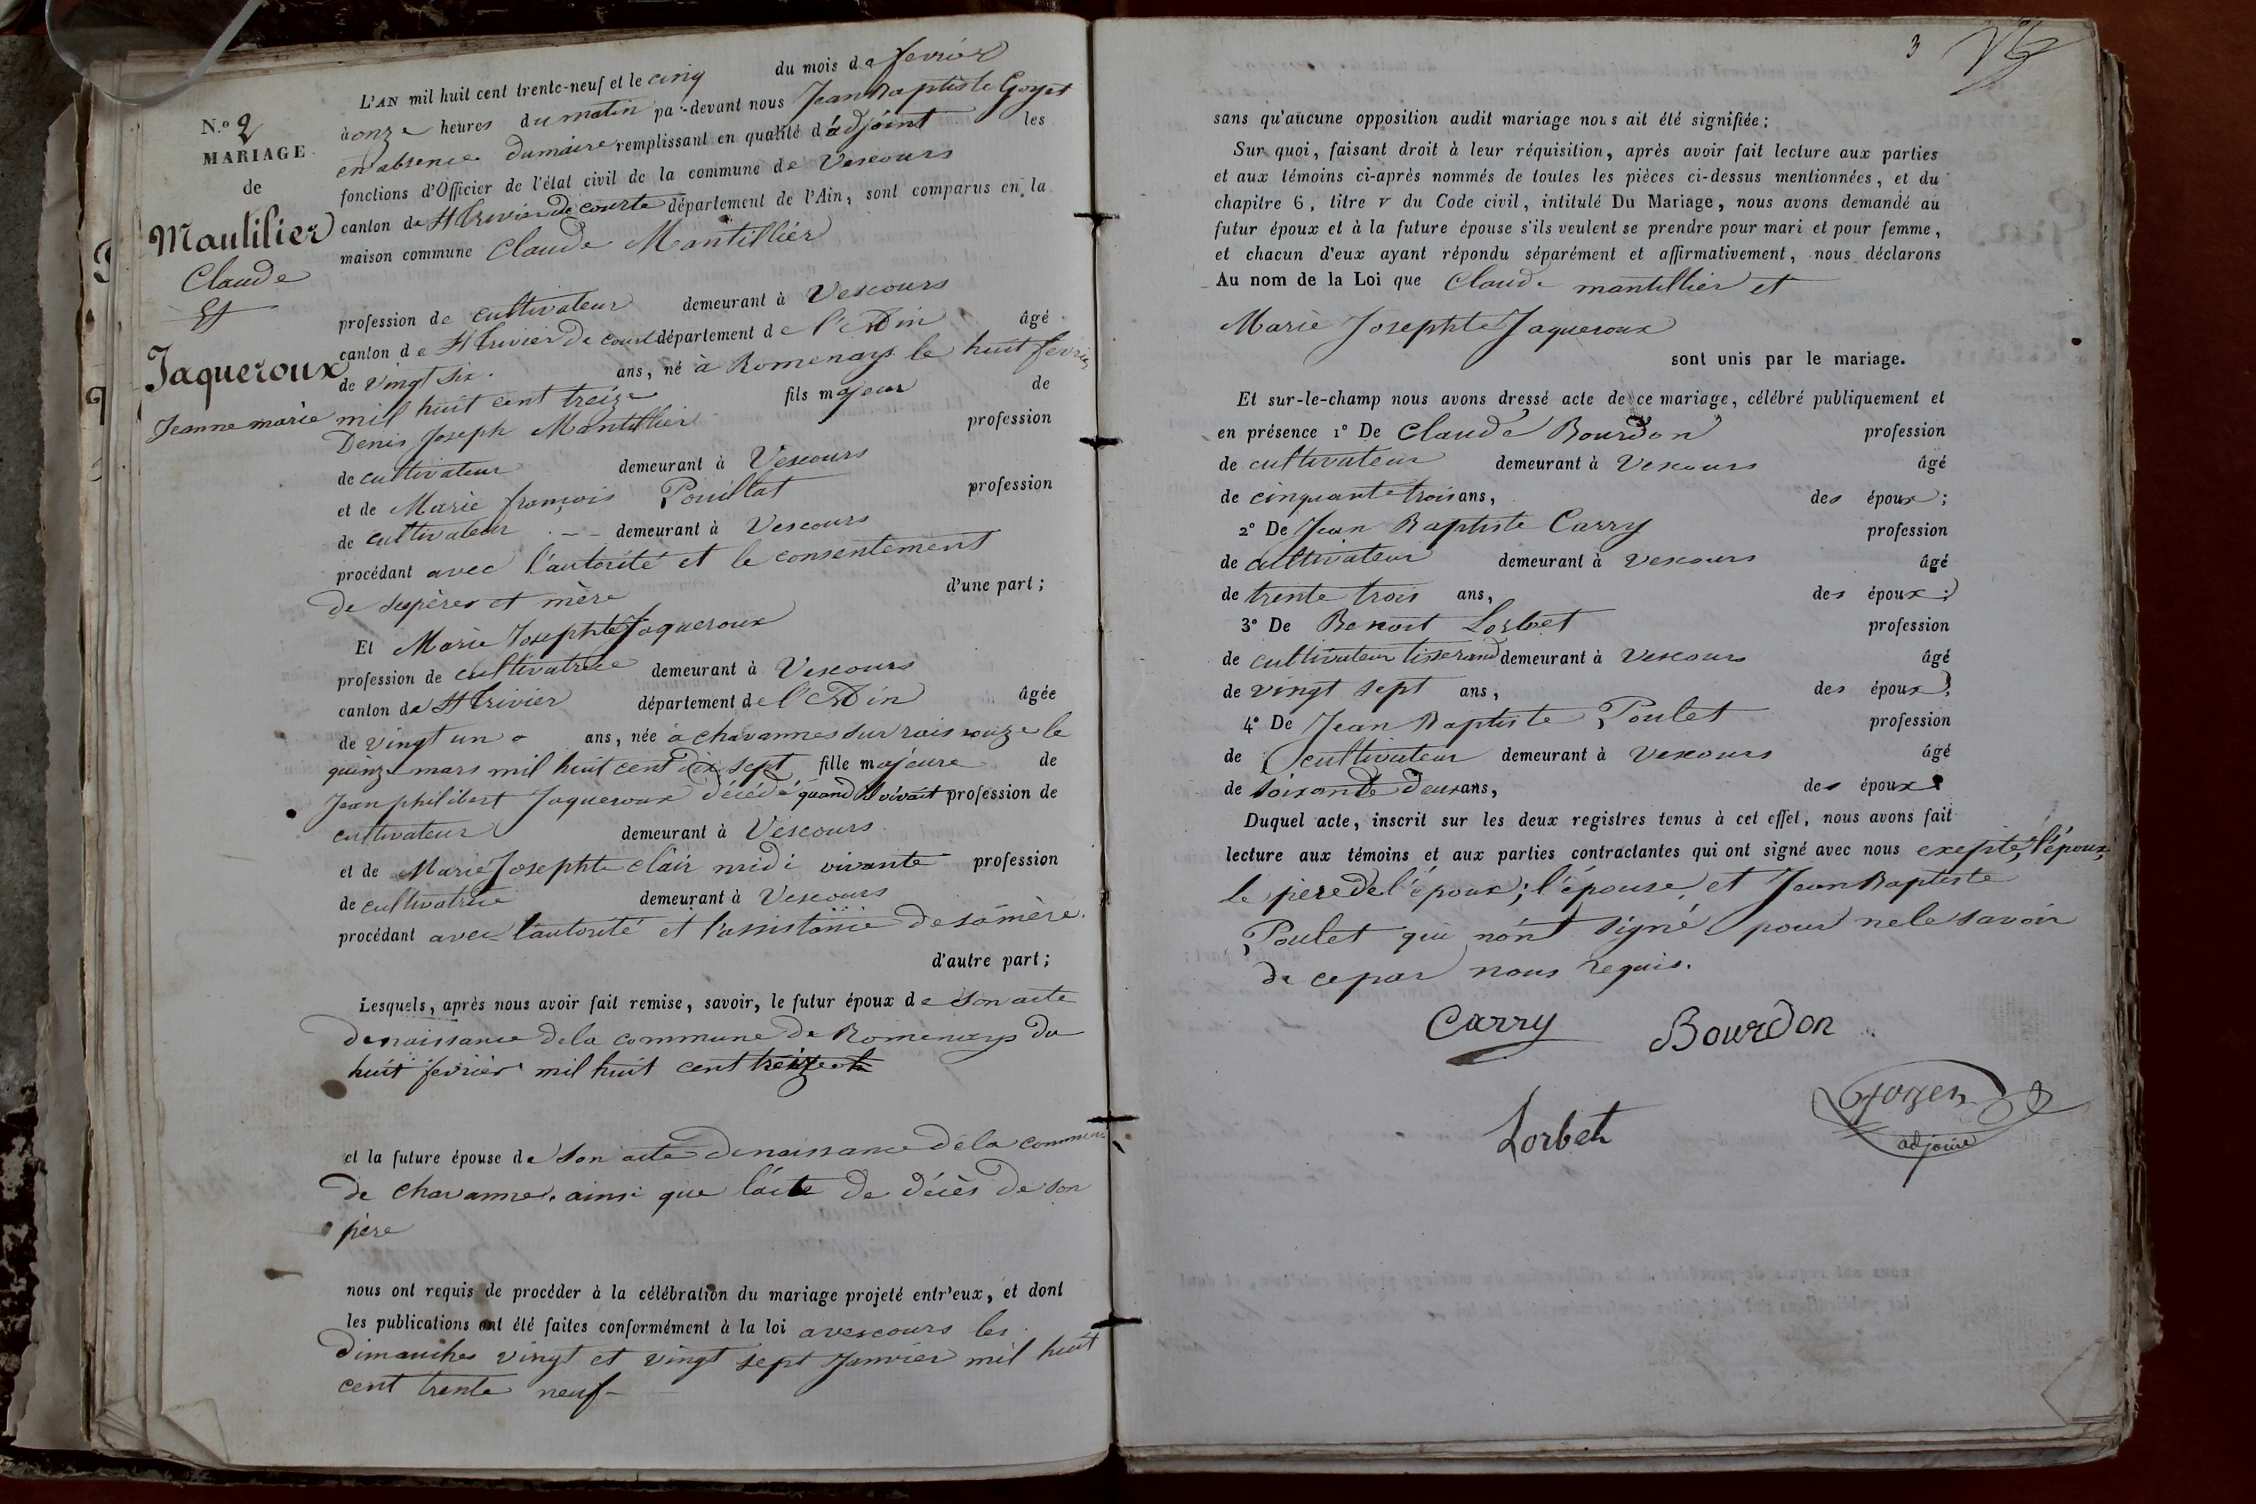 N.o 2
MARIAGE
de
Mantilier
Claude
Et
Jaqueroux
Jeanne marie
L'AN mil huit cent trente-neuf et le cinq du mois de fevrier
à onze heures du matin par-devant nous Jean Baptiste Goyet
en absence du maire remplissant en qualité d'adjoint les
fonctions d'Officier de l'état civil de la commune de Vescours
canton de St trivier de courte département de l'Ain, sont comparus en la
maison commune Claude Mantillier
profession de cultivateur demeurant à Vescours
canton de St trivier de court département de l'Ain âgé
de vingt six ans, né à Romenays le huit fevrier
mil huit cent treize fils majeur de
Denis Joseph Mantillier profession
de cultivateur demeurant à Vescours
et de Marie françois Pouillat profession
de cultivateur demeurant à Vescours
procédant avec l'autorité et le consentement
de ses pères et mère d'une part ;
Et Marie Josephte Jaqueroux
profession de cultivatrice demeurant à Vescours
canton de St trivier département de l'Ain âgée
de vingt un ans, née à chavannes sur rais souze le
quinze mars mil huit cent dix sept fille majeure de
Jean philibert Jaqueroux décédé quand il vivait profession de
cultivateur demeurant à Vescours
et de Marie Josephte clair midi vivante profession
de cultivatrice demeurant à Vescours
procédant avec l'autorité et l'assistance de sa mère.
d'autre part ;
Lesquels, après nous avoir fait remise, savoir, le futur époux de son acte
de naissance de la commune de Romenays du
huit fevrier mil huit cent treize
et la future épouse de son acte de naissance de la commune
de chavanne. ainsi que l'acte de décès de son
père
nous ont requis de procéder à la célébration du mariage projeté entr'eux, et dont
les publications ont été faites conformément à la loi a vescours les
dimanches vingt et vingt sept Janvier mil huit
cent trente neuf
3
sans qu'aucune opposition audit mariage nous ait été signifiée ;
Sur quoi, faisant droit à leur réquisition, après avoir fait lecture aux parties
et aux témoins ci-après nommés de toutes les pièces ci-dessus mentionnées, et du
chapitre 6, titre v du Code civil, intitulé Du Mariage, nous avons demandé au
futur époux et à la future épouse s'ils veulent se prendre pour mari et pour femme,
et chacun d'eux ayant répondu séparément et affirmativement, nous déclarons
Au nom de la Loi que Claude mantillier et
Marie Josephte Jaqueroux
sont unis par le mariage.
Et sur-le-champ nous avons dressé acte de ce mariage, célébré publiquement et
en présence 1° De Claude Bourdon profession
de cultivateur demeurant à Vescours âgé
de cinquante trois ans, des époux ;
2° De Jean Baptiste Carry profession
de cultivateur demeurant à Vescours âgé
de trente trois ans, des époux ;
3° De Benoit Lorbet profession
de cultivateur tisserand demeurant à Vescours âgé
de vingt sept ans, des époux ;
4° De Jean Baptiste Poulet profession
de cultivateur demeurant à Vescours âgé
de soixante deux ans, des époux
Duquel acte, inscrit sur les deux registres tenus à cet effet, nous avons fait
lecture aux témoins et aux parties contractantes qui ont signé avec nous exepté, l'époux,
le père de l'époux ; l'épouse, et Jean Baptiste
Poulet qui n'ont signé pour ne le savoir
de ce par nous requis.
Carry Bourdon
Lorbet Goyet
adjoint